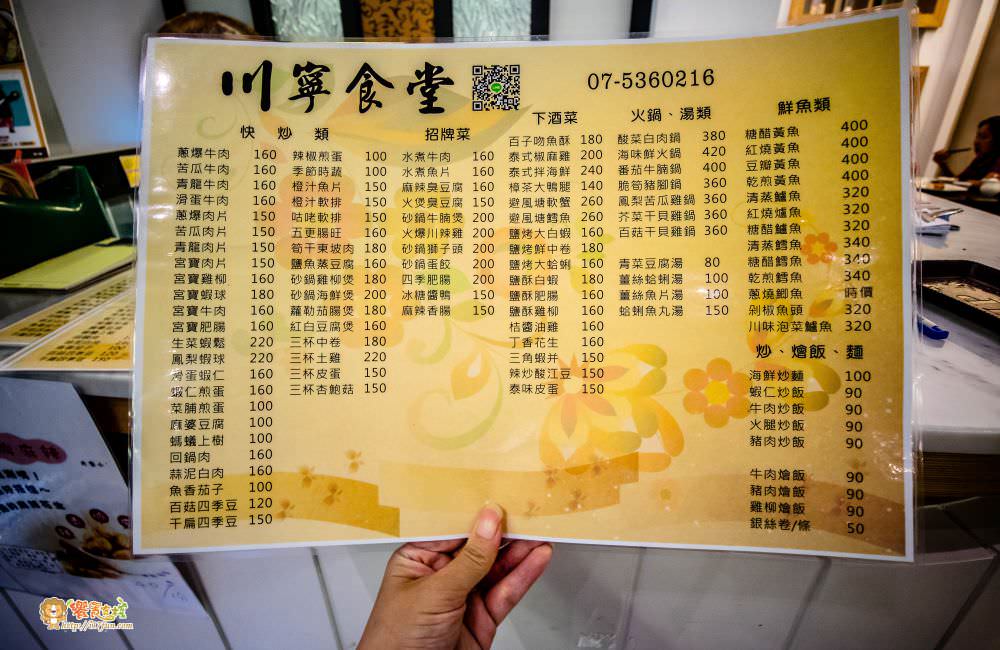 川寧食堂
07-5360216
快炒類
蔥爆牛肉 160
苦瓜牛肉 160
青龍牛肉 160
滑蛋牛肉 160
蔥爆肉片 150
苦瓜肉片 150
青龍肉片 150
宮寶肉片 150
宮寶雞柳 160
宮寶蝦球 180
宮寶牛肉 160
宮寶肥腸 160
生菜蝦鬆 220
鳳梨蝦球 220
烤蛋蝦仁 160
蝦仁煎蛋 160
菜脯煎蛋 100
麻婆豆腐 100
螞蟻上樹 100
回鍋肉 160
蒜泥白肉 160
魚香茄子 100
百菇四季豆 120
干扁四季豆 150
辣椒煎蛋 100
季節時蔬 100
橙汁魚片 150
橙汁軟排 150
咕咾軟排 150
五更腸旺 160
筍干東坡肉 180
鹽魚蒸豆腐 160
砂鍋雞柳煲 180
砂鍋海鮮煲 200
蘿勒茄腸煲 180
紅白豆腐煲 160
三杯中卷 180
三杯土雞 220
三杯皮蛋 150
三杯杏鮑菇 150
招牌菜
水煮牛肉 160
水煮魚片 160
麻辣臭豆腐 160
火煲臭豆腐 150
砂鍋牛腩煲 200
火爆川辣雞 200
砂鍋獅子頭 200
砂鍋蛋餃 200
四季肥腸 200
冰糖醬鴨 150
麻辣香腸 150
下酒菜
百子吻魚酥 180
泰式椒麻雞 200
泰式拌海鮮 240
樟茶大鴨腿 140
避風塘軟蟹 260
避風塘鱈魚 260
鹽烤大白蝦 160
鹽烤鮮中卷 180
鹽烤大蛤蜊 160
鹽酥白蝦 180
鹽酥肥腸 160
鹽酥雞柳 160
桔醬油雞 160
丁香花生 160
三角蝦并 150
辣炒酸江豆 150
泰味皮蛋 150
火鍋、湯類
酸菜白肉鍋 380
海味鮮火鍋 420
番茄牛腩鍋 400
脆筍豬腳鍋 360
鳳梨苦瓜雞鍋 360
芥菜干貝雞鍋 360
百菇干貝雞鍋 360
青菜豆腐湯 80
薑絲蛤蜊湯 100
薑絲魚片湯 100
蛤蜊魚丸湯 150
鮮魚類
糖醋黃魚 400
紅燒黃魚 400
豆瓣黃魚 400
乾煎黃魚 400
清蒸鱸魚 320
紅燒爐魚 320
糖醋鱸魚 320
清蒸鱈魚 340
糖醋鱈魚 340
乾煎鱈魚 340
蔥燒鯽魚 時價
剁椒魚頭 320
川味泡菜鱸魚 320
炒、燴飯、麵
海鮮炒麵 100
蝦仁炒飯 90
牛肉炒飯 90
火腿炒飯 90
豬肉炒飯 90
牛肉燴飯 90
豬肉燴飯 90
雞柳燴飯 90
銀絲卷/條 50
http://i17fun.com